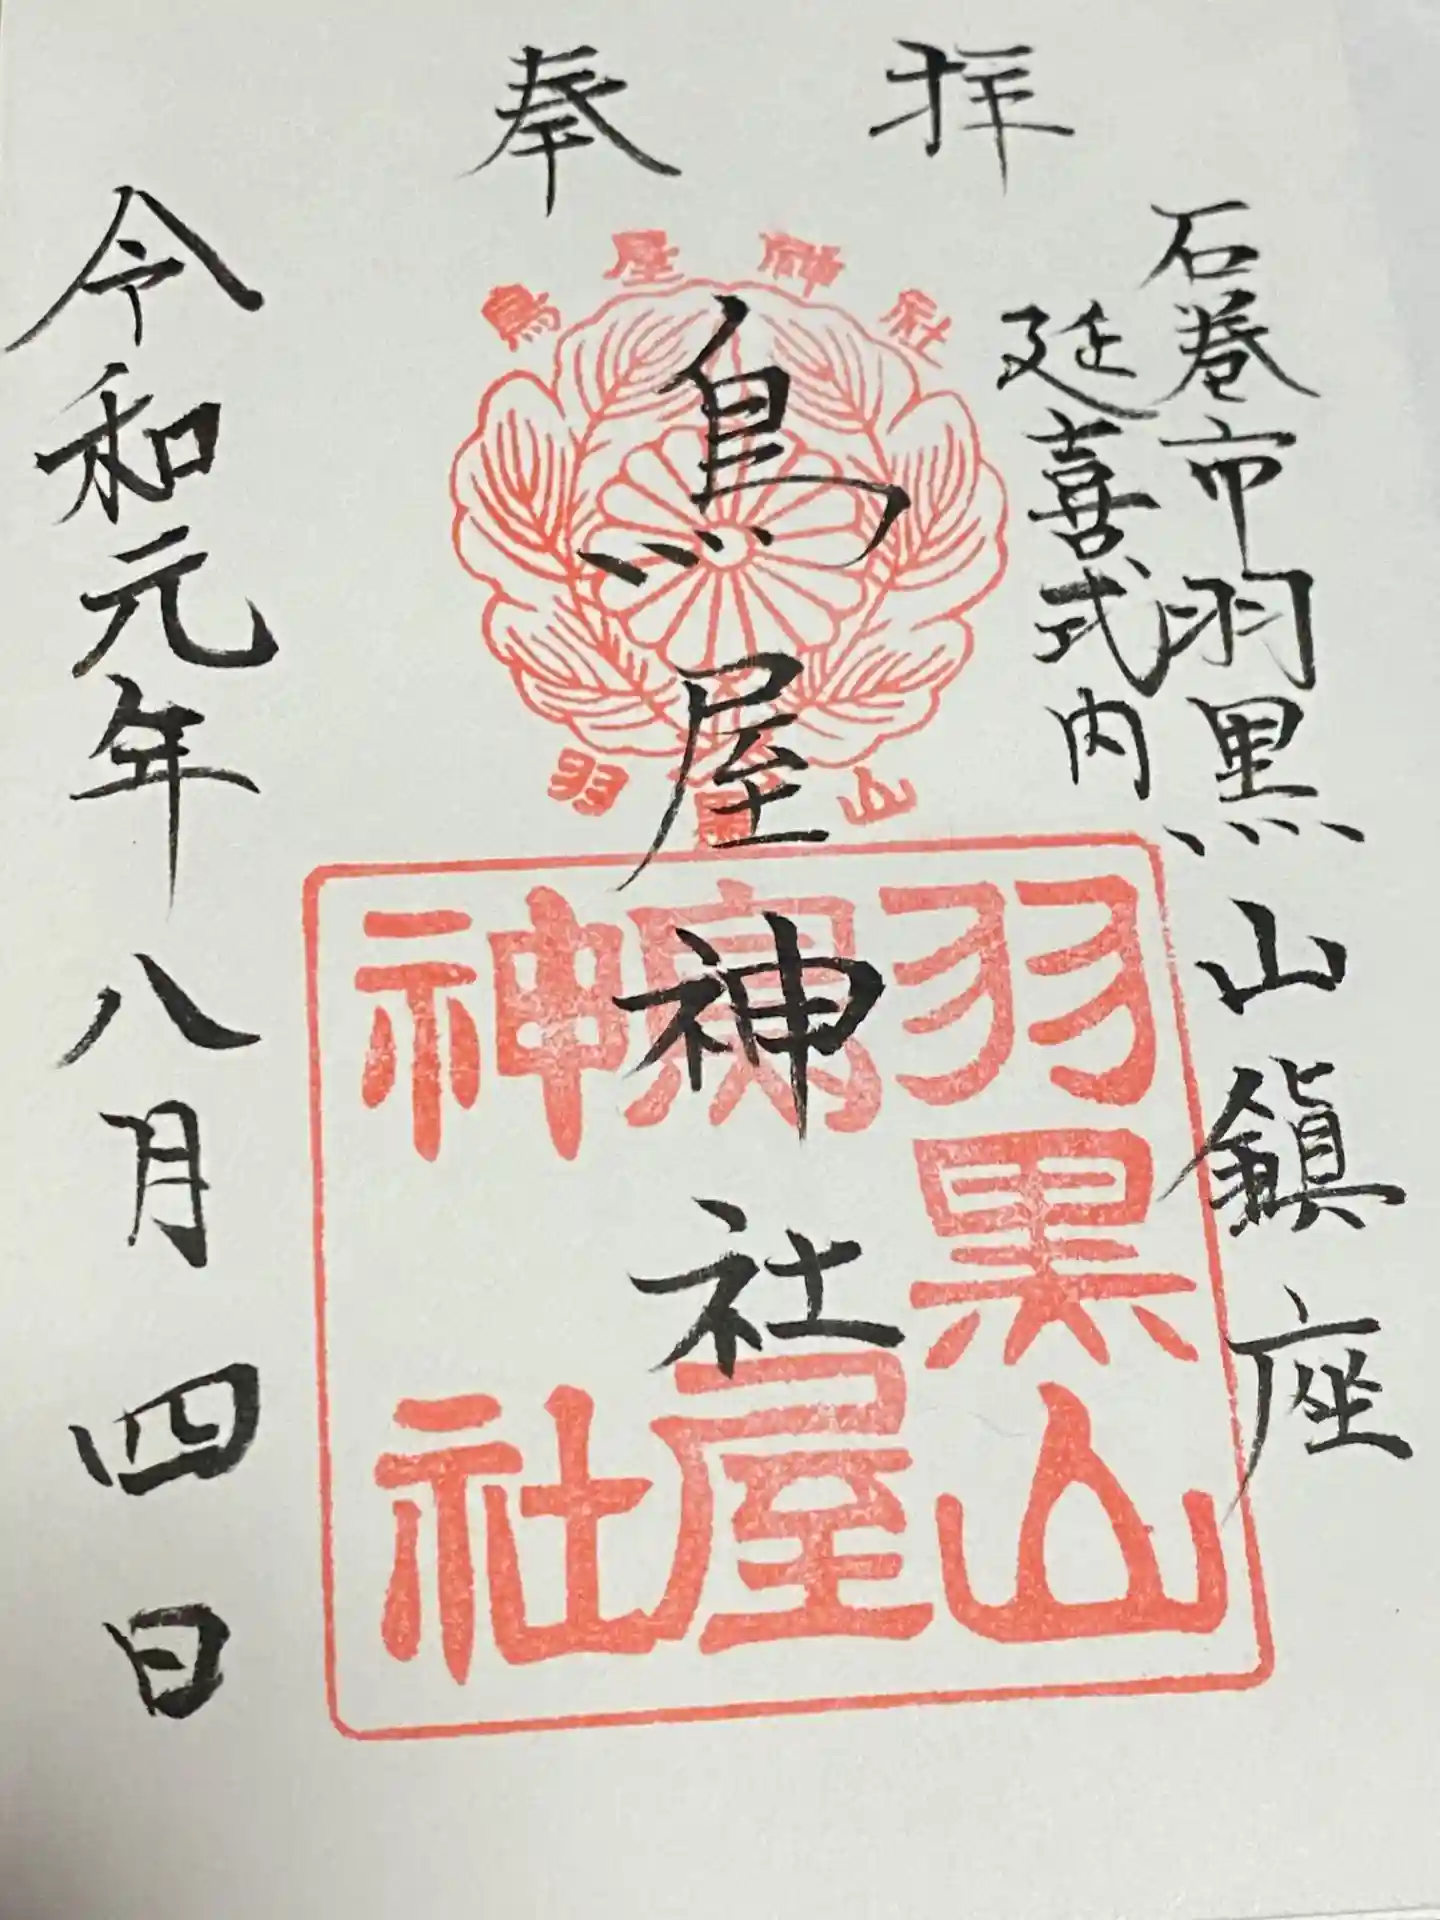 奉拝
石巻市羽黒山鎮座
延喜式内
鳥屋神社
令和元年八月四日
鳥屋神社
羽黒山
羽黒山
鳥屋
神社